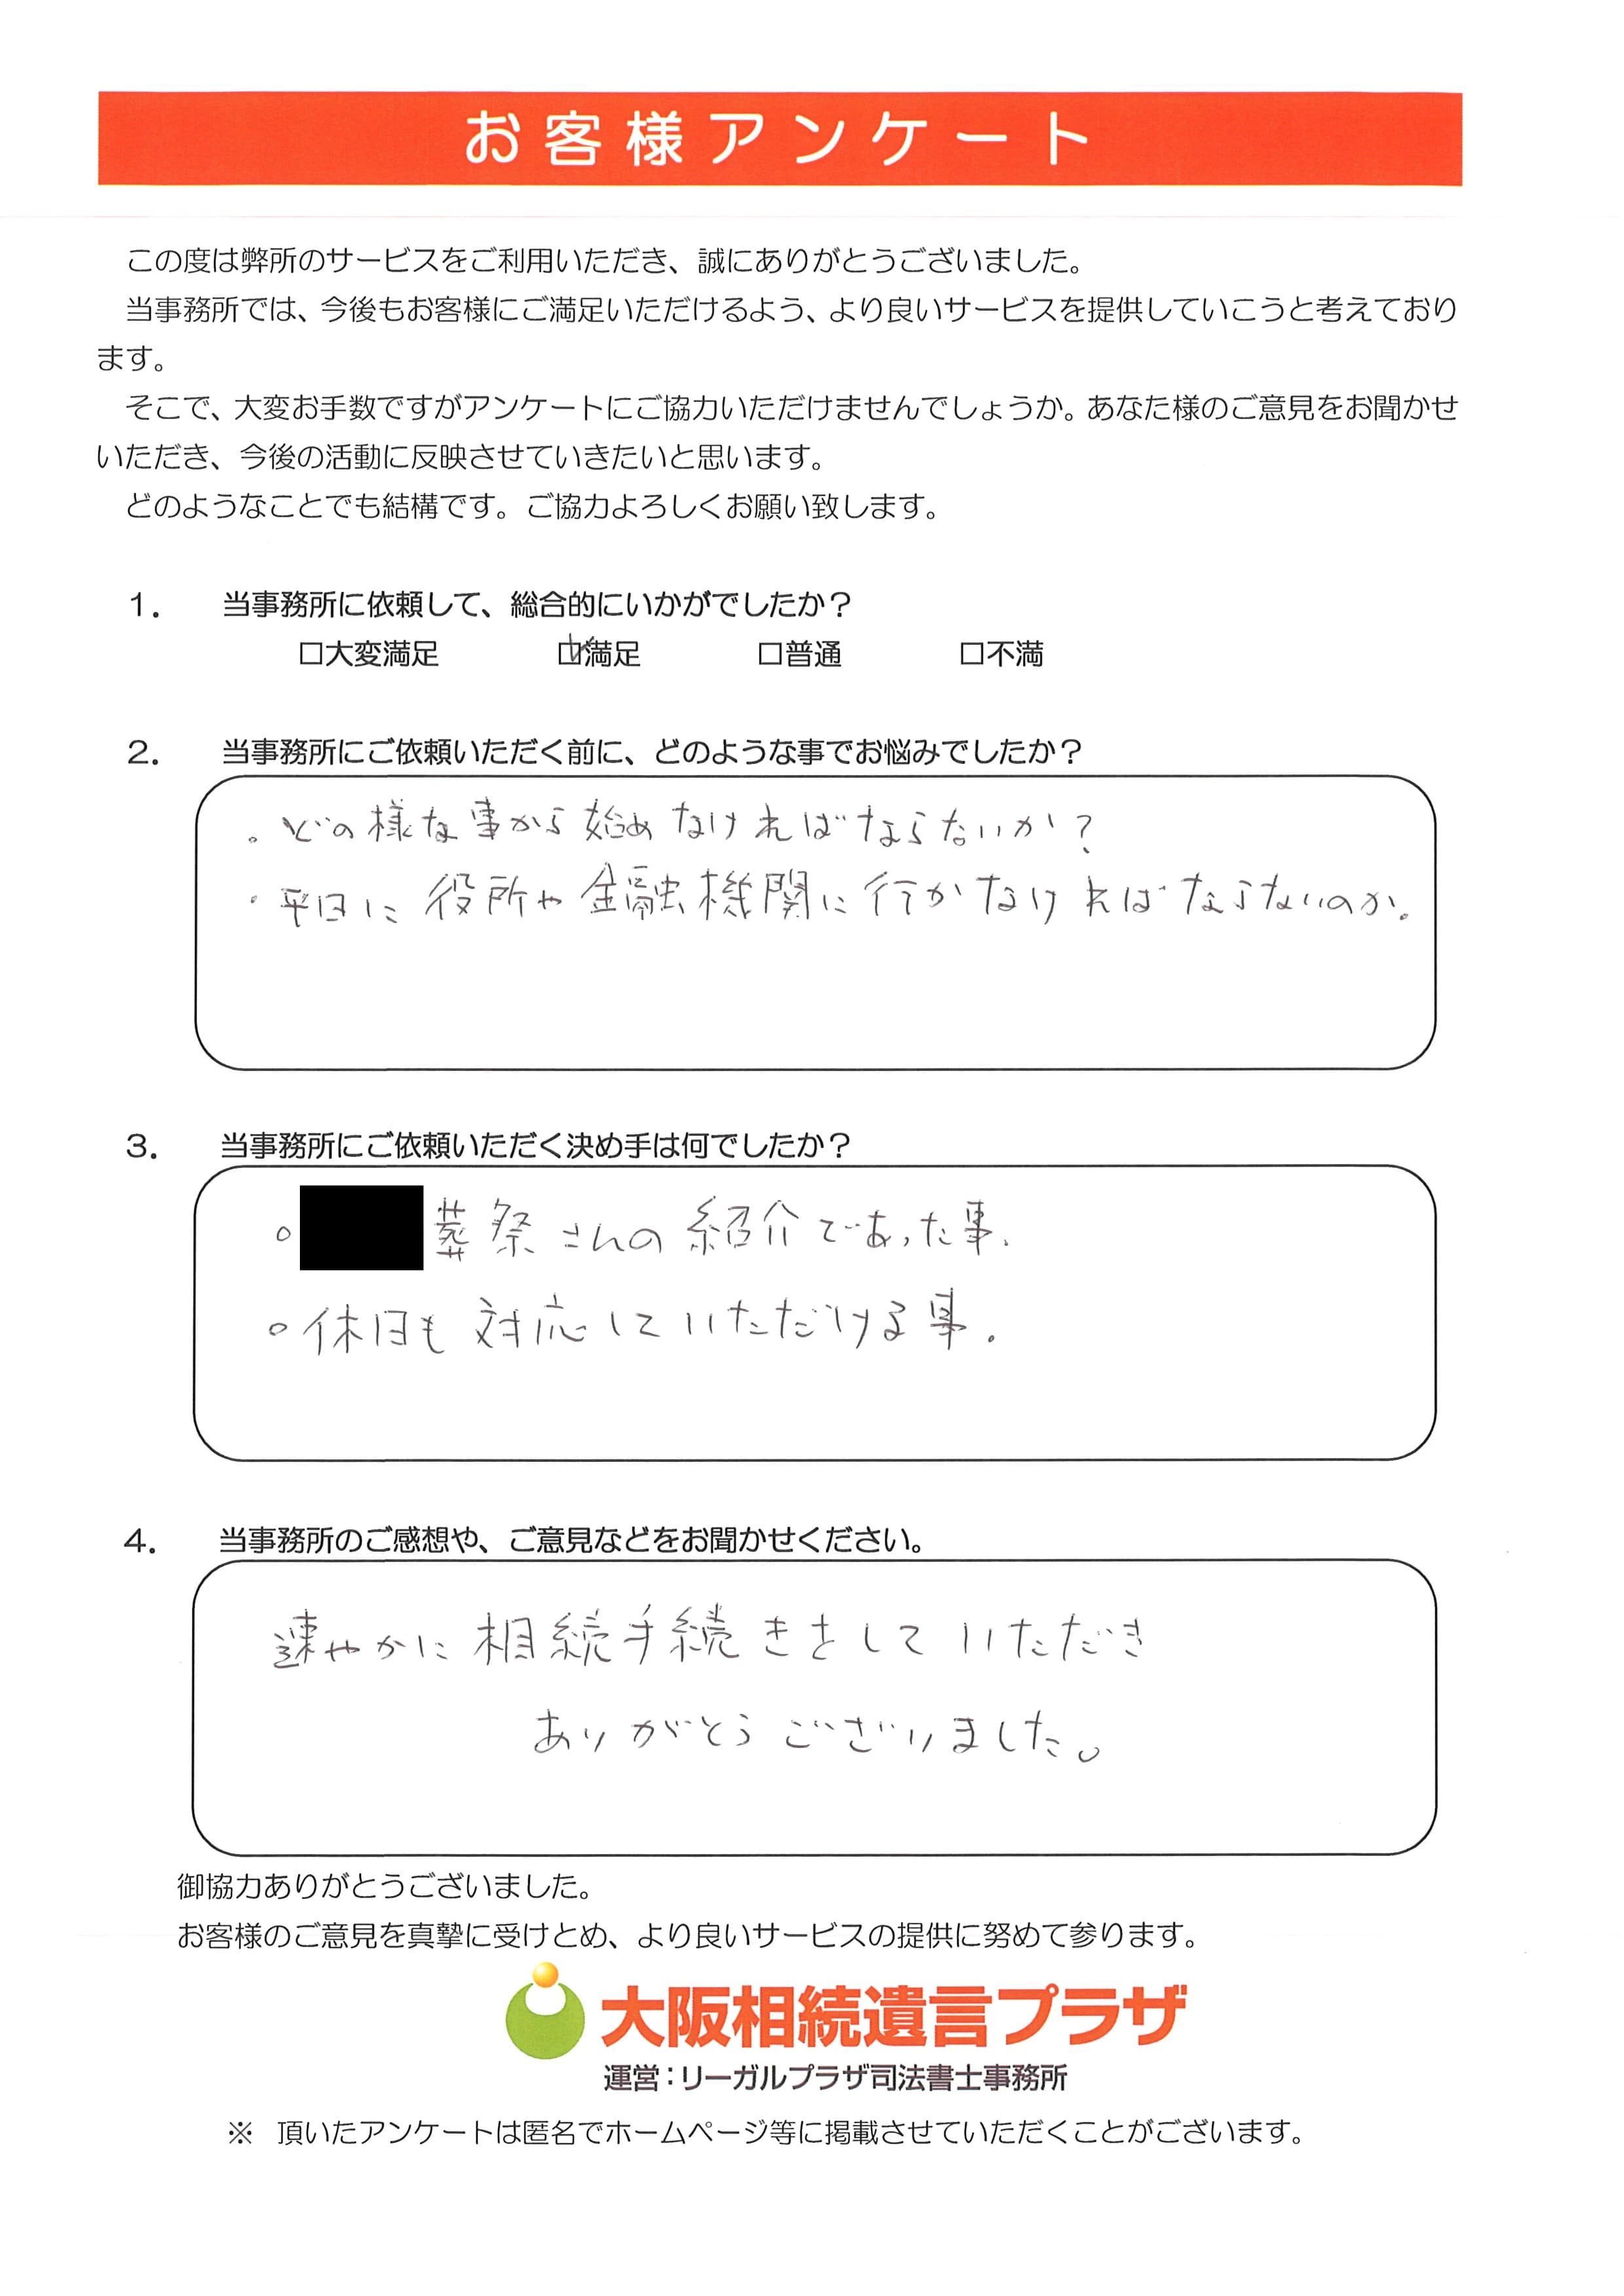 お客様アンケート
この度は弊所のサービスをご利用いただき、誠にありがとうございました。
当事務所では、今後もお客様にご満足いただけるよう、より良いサービスを提供していこうと考えており
ます。
そこで、大変お手数ですがアンケートにご協力いただけませんでしょうか。あなた様のご意見をお聞かせ
いただき、今後の活動に反映させていきたいと思います。
どのようなことでも結構です。ご協力よろしくお願い致します。
1. 当事務所に依頼して、総合的にいかがでしたか？
□大変満足 ☑満足 □普通 □不満
2. 当事務所にご依頼いただく前に、どのような事でお悩みでしたか？
。どの様な事から始めなければならないか？
・平日に役所や金融機関に行かなければならないのか。
3. 当事務所にご依頼いただく決め手は何でしたか？
○ 葬祭さんの紹介であった事.
○休日も対応していただける事.
4. 当事務所のご感想や、ご意見などをお聞かせください。
速やかに相続手続きをしていただき
ありがとうございました。
御協力ありがとうございました。
お客様のご意見を真摯に受けとめ、より良いサービスの提供に努めて参ります。
大阪相続遺言プラザ
運営：リーガルプラザ司法書士事務所
※ 頂いたアンケートは匿名でホームページ等に掲載させていただくことがございます。